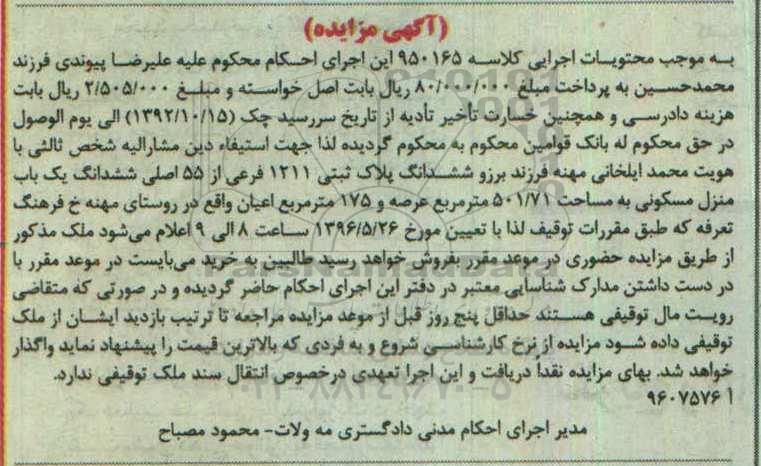 (آگهی مزایده)
به موجب محتویات اجرایی کلاسه ۹۵۰۱۶۵ این اجرای احکام محکوم علیه علیرضا پیوندی فرزند
محمدحسین به پرداخت مبلغ ۸۰/۰۰۰/۰۰۰ ریال بابت اصل خواسته و مبلغ ۲/۵۰۵/۰۰۰ ریال بابت
هزینه دادرسی و همچنین خسارت تأخیر تأدیه از تاریخ سررسید چک (۱۳۹۲/۱۰/۱۵) الی یوم الوصول
در حق محکوم له بانک قوامین محکوم به محکوم گردیده لذا جهت استیفاء دین مشارالیه شخص ثالثی با
هویت محمد ایلخانی مهنه فرزند برزو ششدانگ پلاک ثبتی ۱۲۱۱ فرعی از ۵۵ اصلی ششدانگ یک باب
منزل مسکونی به مساحت ۵۰۱/۷۱ مترمربع عرصه و ۱۷۵ مترمربع اعیان واقع در روستای مهنه خ فرهنگ
تعرفه که طبق مقررات توقیف لذا با تعیین مورخ ۱۳۹۶/۵/۲۶ ساعت ۸ الی ۹ اعلام می‌شود ملک مذکور
از طریق مزایده حضوری در موعد مقرر بفروش خواهد رسید طالبین به خرید می‌بایست در موعد مقرر با
در دست داشتن مدارک شناسایی معتبر در دفتر این اجرای احکام حاضر گردیده و در صورتی که متقاضی
رویت مال توقیفی هستند حداقل پنج روز قبل از موعد مزایده مراجعه تا ترتیب بازدید ایشان از ملک
توقیفی داده شود مزایده از نرخ کارشناسی شروع و به فردی که بالاترین قیمت را پیشنهاد نماید واگذار
خواهد شد. بهای مزایده نقداً دریافت و این اجرا تعهدی درخصوص انتقال سند ملک توقیفی ندارد.
۹۶۰۷۵۷۶ آ
مدیر اجرای احکام مدنی دادگستری مه ولات- محمود مصباح
ParsNamadData
۰۲۱-۸۸۳۴۹۶۷۰-۵